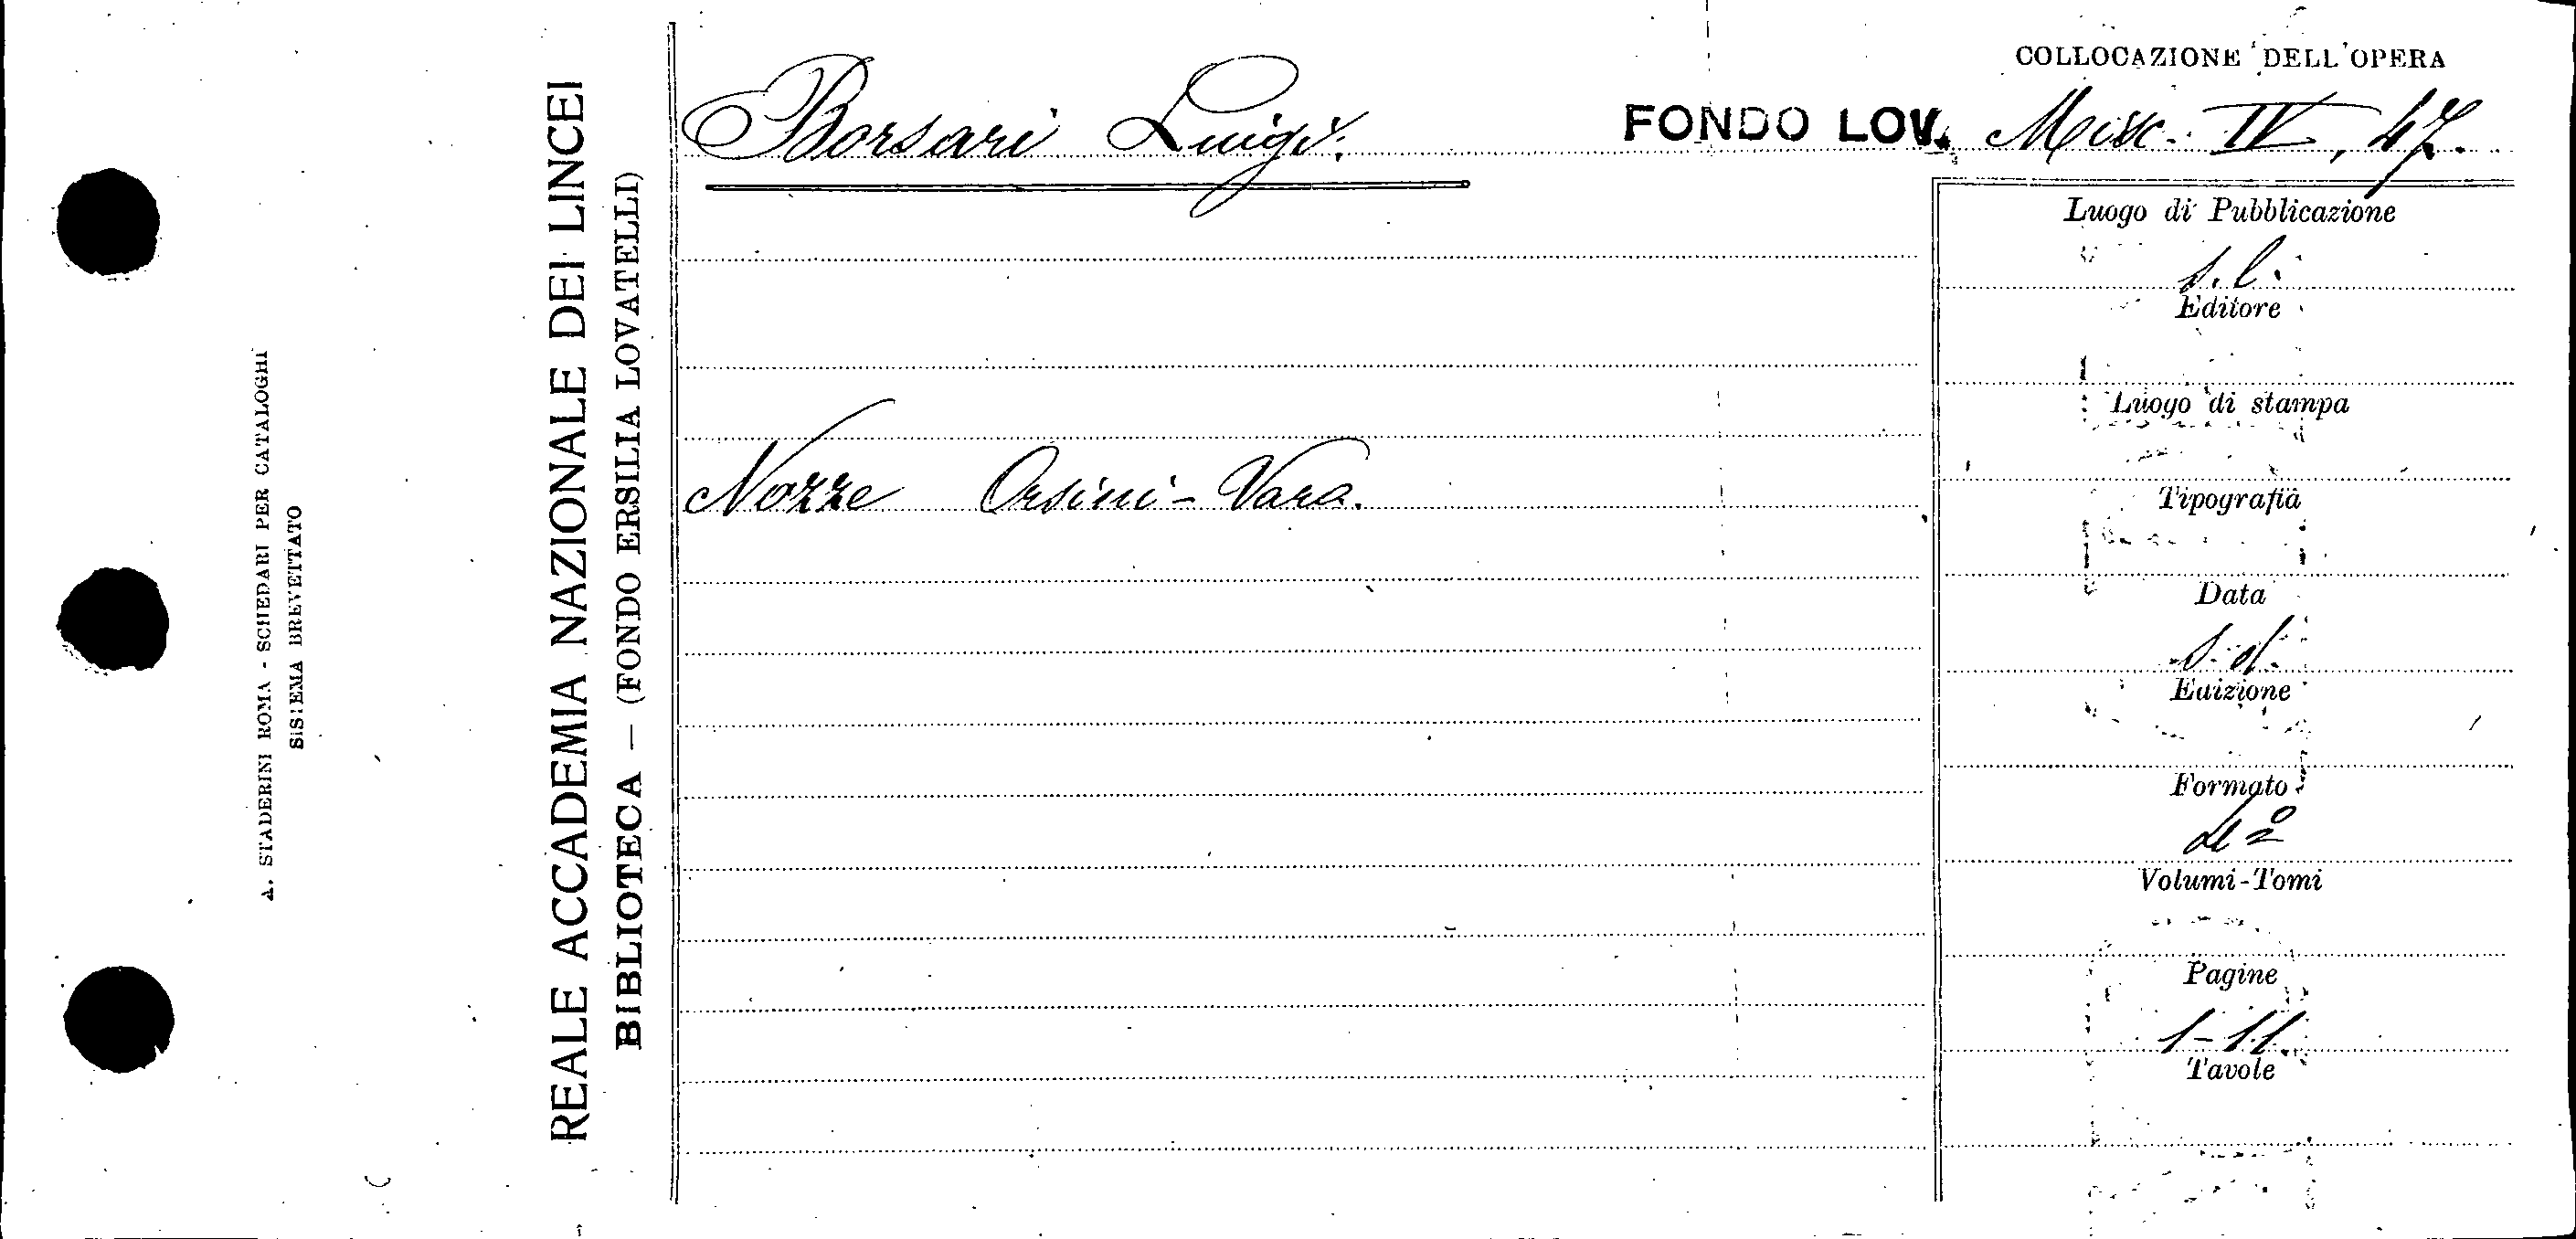 A. STADERINI ROMA - SCHEDARI PER CATALOGHI
SISTEMA BREVETTATO
REALE ACCADEMIA NAZIONALE DEI LINCEI
BIBLIOTECA — (FONDO ERSILIA LOVATELLI)
COLLOCAZIONE DELL'OPERA
Borsari Luigi.
FONDO LOV. Misc. IV, 47.
Nozze Orsini-Vara.
Luogo di Pubblicazione
s.l.
Editore
Luogo di stampa
Tipografia
Data
s.d.
Edizione
Formato
Volumi-Tomi
Pagine
1-11.
Tavole